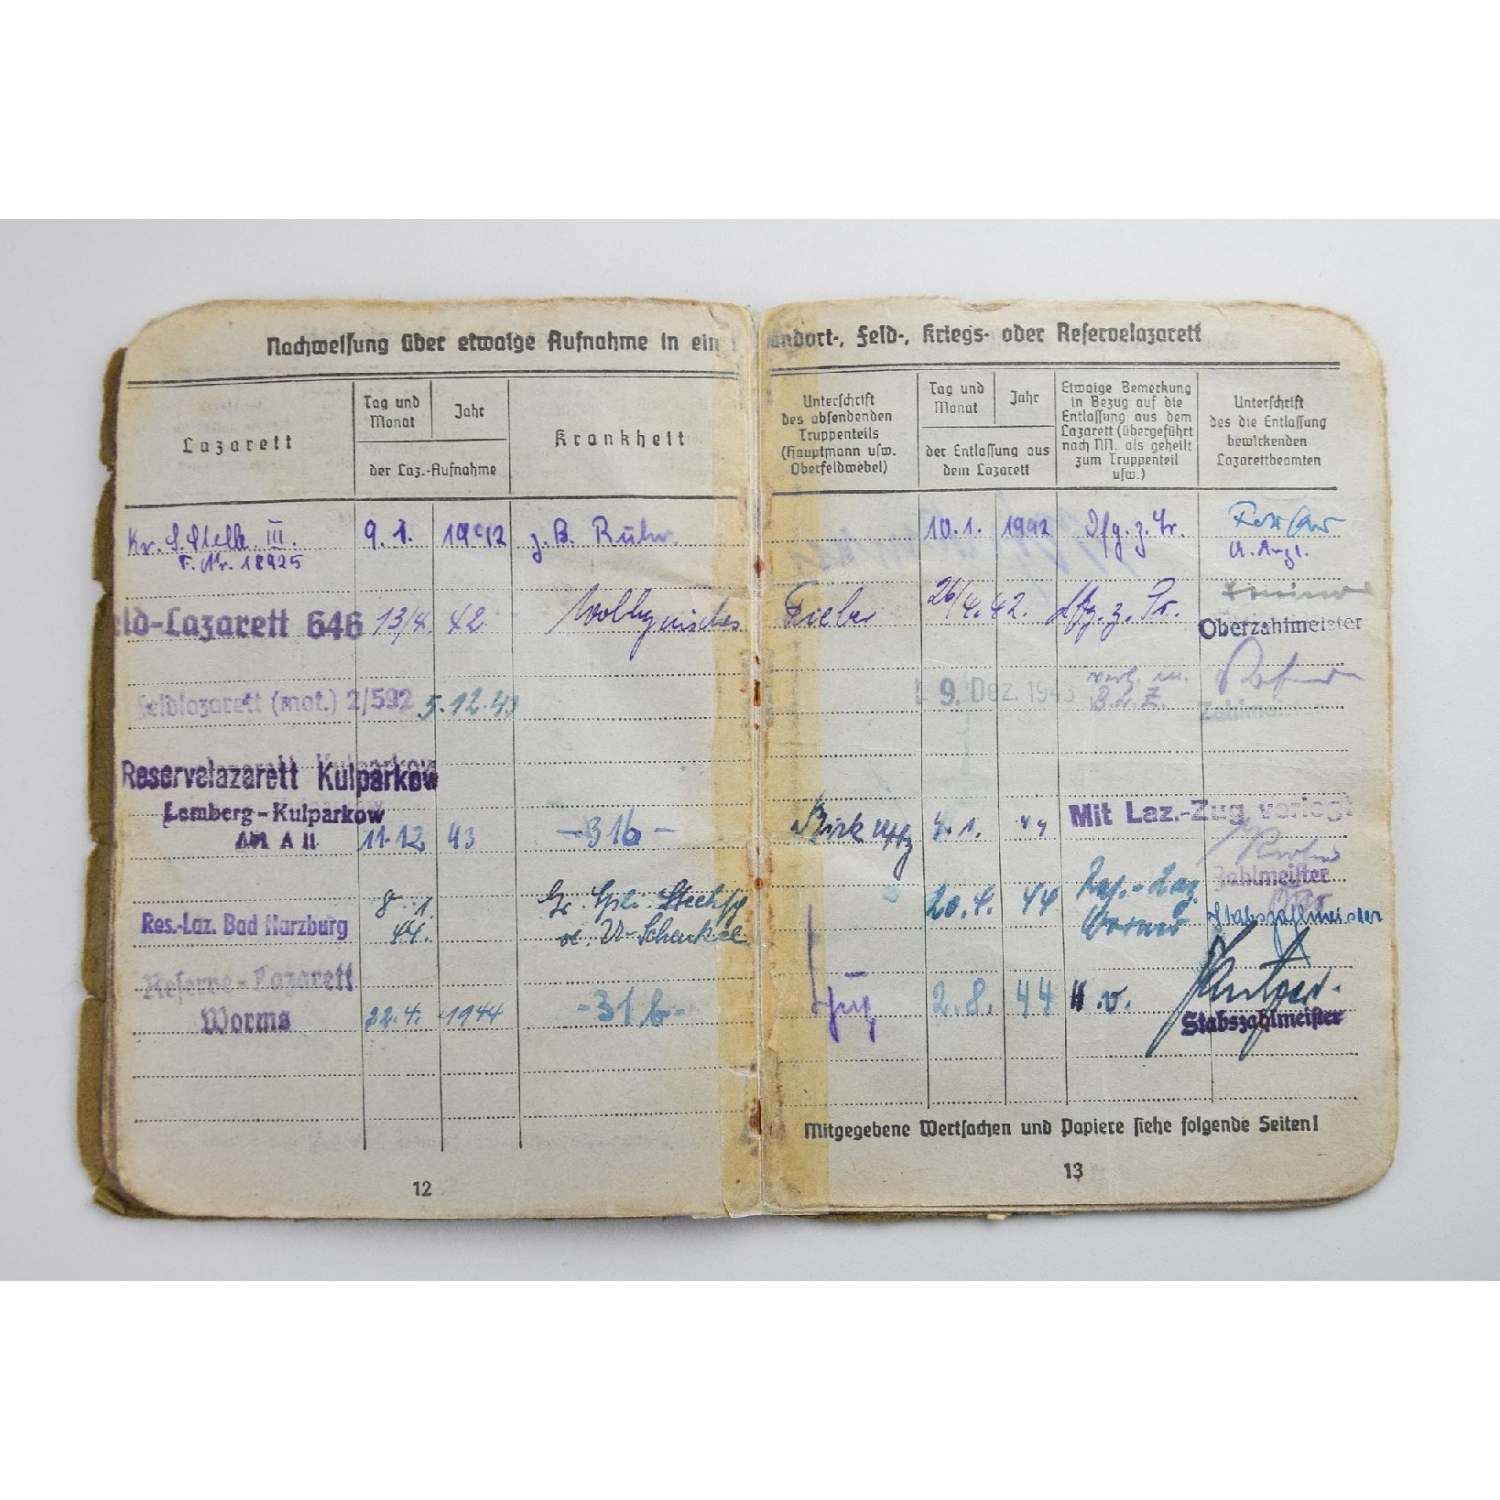 Nachweisung über etwaige Aufnahme in ein
Lazarett
Tag und
Monat
Jahr
der Laz.-Aufnahme
Krankheit
Kr. S. Stelle III.
F. Nr. 18925
9. 1. 1942
z. B. Ruhr
ld-Lazarett 646
13/4. 42
Wolhynisches
Feldlazarett (mot.) 2/592
5.12.43
Reservelazarett Kulparkow
Lemberg-Kulparkow
Abt A II
11.12. 43
-31b-
Res.-Laz. Bad Harzburg
8. 1.
44.
Gr. Spli. Stecksch
re. U-Schenkel
Reserve-Lazarett
Worms
22.4. 1944
-31b-
12
andort-, Feld-, Kriegs- oder Reservelazarett
Unterschrift
des absendenden
Truppenteils
(Hauptmann usw.
Oberfeldwebel)
Tag und
Monat
Jahr
der Entlassung aus
dem Lazarett
Etwaige Bemerkung
in Bezug auf die
Entlassung aus dem
Lazarett (übergeführt
nach NN. als geheilt
zum Truppenteil
usw.)
Unterschrift
des die Entlassung
bewirkenden
Lazarettbeamten
10. 1. 1942 Dfg. z. Tr.
Fieber
26/4. 42. dfg. z. Tr.
Oberzahlmeister
9. Dez. 1943
verl. m.
Zahlmeister
4. 1. 44
Mit Laz.-Zug verlegt
Zahlmeister
20. 4. 44
Res.-Laz.
Worms
Stabszahlmeister
2. 8. 44
k.v.
Stabszahlmeister
Mitgegebene Wertsachen und Papiere siehe folgende Seiten!
13